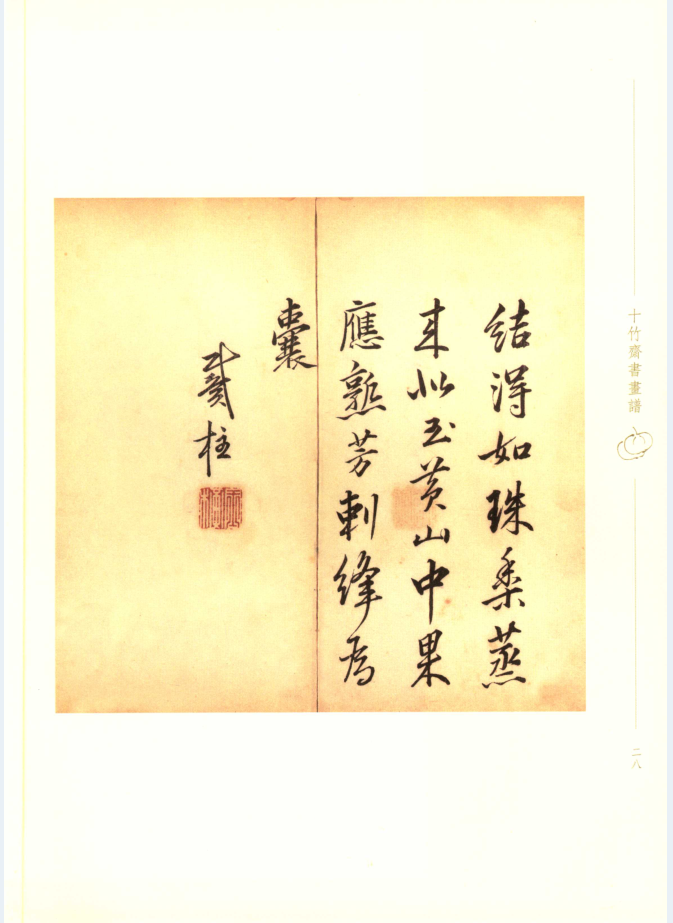 結得如珠蒸
来似玉黄山中果
應熟芳刺縫為
囊
柱
十竹齋書畫譜
二八